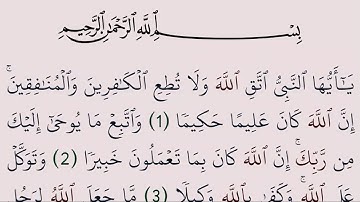 بِسْمِ اللَّهِ الرَّحْمَٰنِ الرَّحِيمِ
يَـٰٓأَيُّهَا ٱلنَّبِىُّ ٱتَّقِ ٱللَّهَ وَلَا تُطِعِ ٱلْكَـٰفِرِينَ وَٱلْمُنَـٰفِقِينَ ۗ
إِنَّ ٱللَّهَ كَانَ عَلِيمًا حَكِيمًا (1) وَٱتَّبِعْ مَا يُوحَىٰٓ إِلَيْكَ
مِن رَّبِّكَ ۚ إِنَّ ٱللَّهَ كَانَ بِمَا تَعْمَلُونَ خَبِيرًا (2) وَتَوَكَّلْ
عَلَى ٱللَّهِ ۚ وَكَفَىٰ بِٱللَّهِ وَكِيلًا (3) مَّا جَعَلَ ٱللَّهُ لِرَجُلٍ